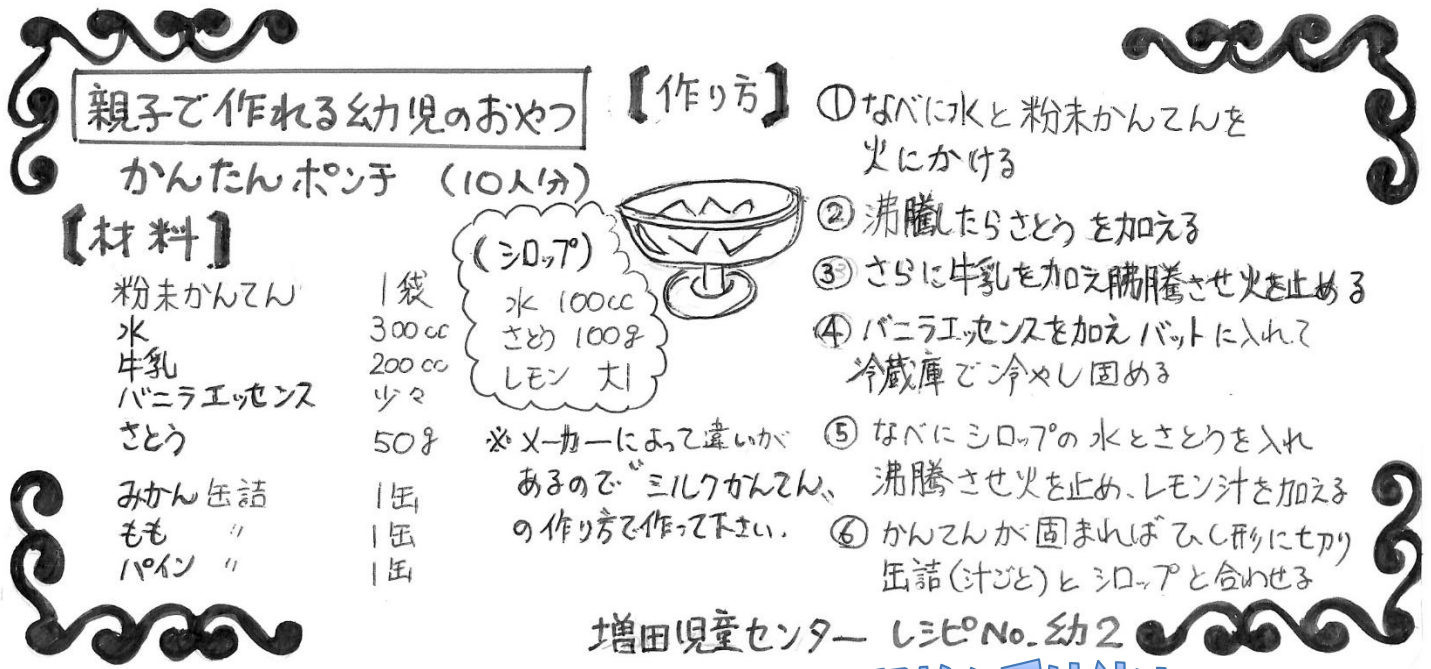 親子で作れる幼児のおやつ
かんたんポンチ (10人分)
【材料】
粉末かんてん 1袋
水 300cc
牛乳 200cc
バニラエッセンス 少々
さとう 50g
みかん缶詰 1缶
もも 〃 1缶
パイン 〃 1缶
(シロップ)
水 100cc
さとう 100g
レモン 大1
※メーカーによって違いが
あるので〝ミルクかんてん〟
の作り方で作って下さい.
【作り方】
①なべに水と粉末かんてんを
火にかける
②沸騰したらさとうを加える
③さらに牛乳を加え沸騰させ火を止める
④バニラエッセンスを加えバットに入れて
冷蔵庫で冷やし固める
⑤なべにシロップの水とさとうを入れ
沸騰させ火を止め、レモン汁を加える
⑥かんてんが固まればひし形に切り
缶詰(汁ごと)とシロップと合わせる
増田児童センター レシピNo.幼2